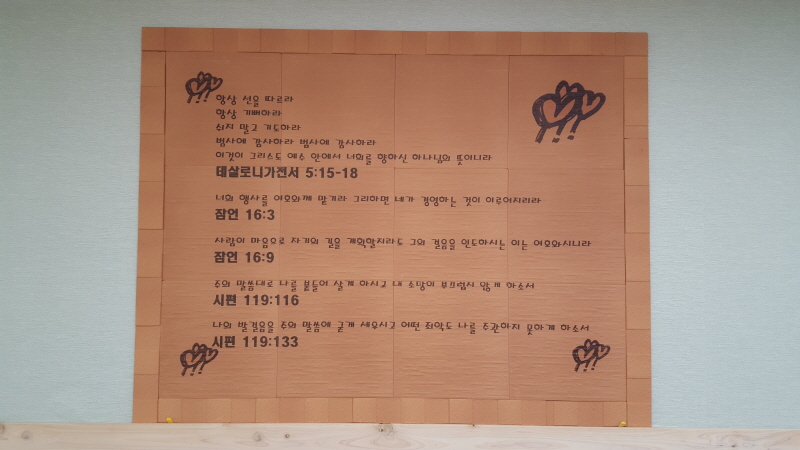 항상 선을 따르라
항상 기뻐하라
쉬지 말고 기도하라
범사에 감사하라 범사에 감사하라
이것이 그리스도 예수 안에서 너희를 향하신 하나님의 뜻이니라
데살로니가전서 5:15-18
너의 행사를 여호와께 맡기라 그리하면 네가 경영하는 것이 이루어지리라
잠언 16:3
사람이 마음으로 자기의 길을 계획할지라도 그의 걸음을 인도하시는 이는 여호와시니라
잠언 16:9
주의 말씀대로 나를 붙들어 살게 하시고 내 소망이 부끄럽지 않게 하소서
시편 119:116
나의 발걸음을 주의 말씀에 굳게 세우시고 어떤 죄악도 나를 주관하지 못하게 하소서
시편 119:133